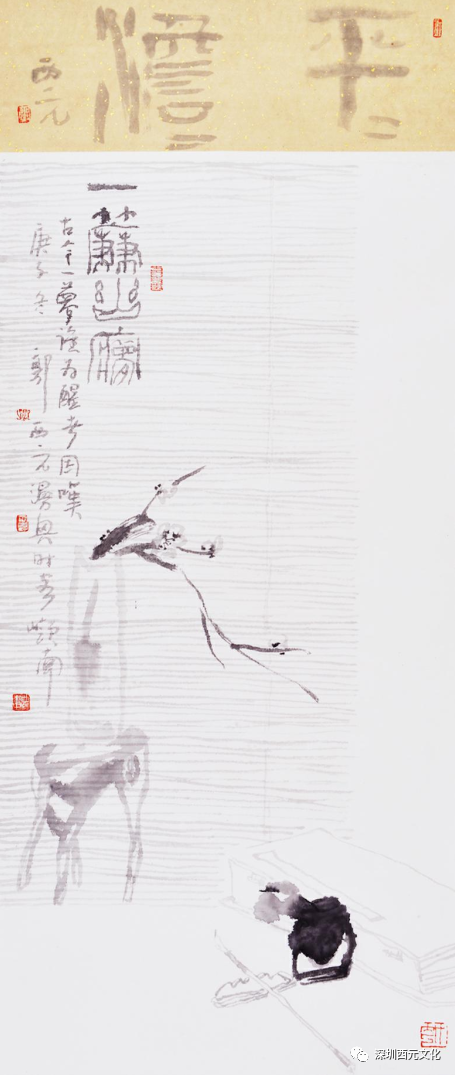 平澹
西元
一簾幽夢
古今一夢誰為醒者因嘆
庚子冬郭西元漫興時客嶺南
深圳西元文化